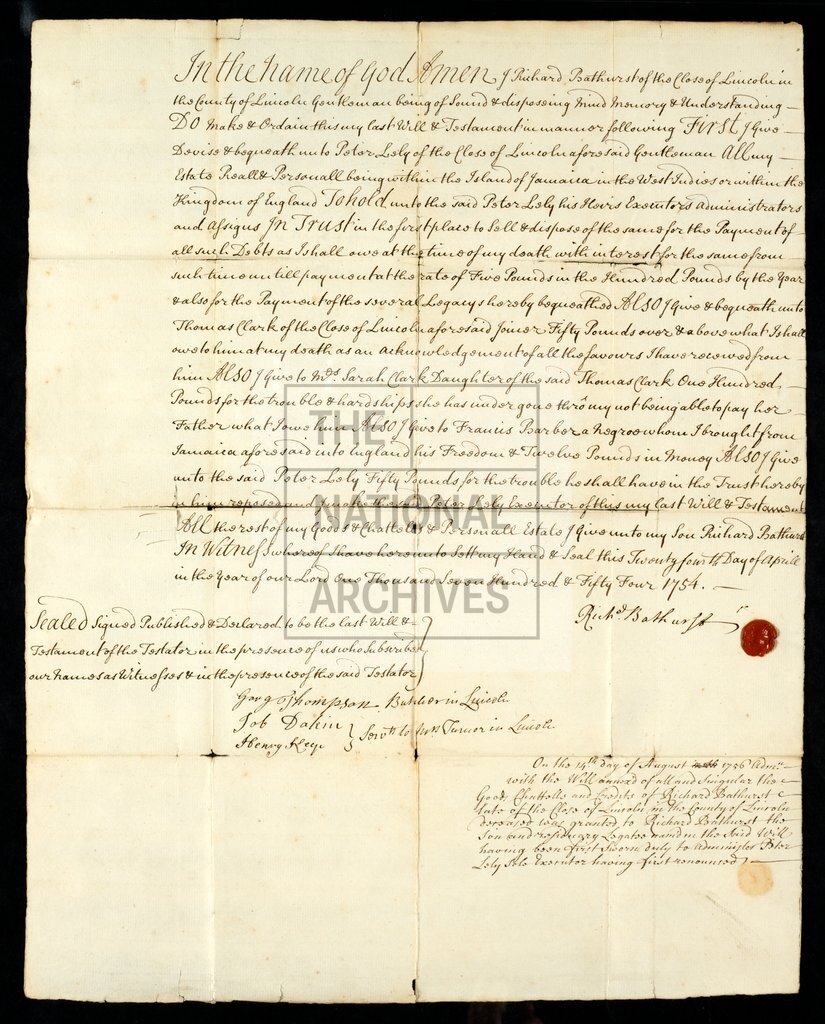 In the Name of God Amen I Richard Bathurst of the Close of Lincoln in
the County of Lincoln Gentleman being of Sound & disposing Mind Memory & Understanding
Do Make & Ordain this my last Will & Testament in manner following First I Give
Devise & bequeath unto Peter Lely of the Close of Lincoln aforesaid Gentleman All my
Estate Reall & Personall being within the Island of Jamaica in the West Indies or within the
Kingdom of England To hold unto the said Peter Lely his Heirs Executors administrators
and assigns In Trust in the first place to Sell & dispose of the same for the Payment of
all such Debts as I shall owe at the time of my death with interest for the same from
such time untill payment at the rate of Five Pounds in the Hundred Pounds by the Year
& also for the Payment of the several Legacys hereby bequeathed Also I Give & bequeath unto
Thomas Clark of the Close of Lincoln aforesaid Joiner Fifty Pounds over & above what I shall
owe to him at my death as an acknowledgement of all the favours I have received from
him Also I Give to Mrs. Sarah Clark Daughter of the said Thomas Clark One Hundred
Pounds for the trouble & hardships she has under gone thro' my not being able to pay her
Father what I owe him Also I Give to Francis Barber a Negroe whom I brought from
Jamaica aforesaid into England his Freedom & Twelve Pounds in Money Also I Give
unto the said Peter Lely Fifty Pounds for the trouble he shall have in the Trust hereby
in him reposed and I make the said Peter Lely Executor of this my last Will & Testament
All the rest of my Goods & Chattells & Personall Estate I Give unto my Son Richard Bathurst
In Witness whereof I have hereunto Sett my Hand & Seal this Twenty fourth Day of Aprill
in the Year of our Lord One Thousand Seven Hundred & Fifty Four 1754.
Richd. Bathurst
Sealed Signed Published & Declared to be the last Will &
Testament of the Testator in the presence of us who Subscribe
our Names as Witnesses & in the presence of the said Testator
Georg Thompson Butcher in Lincoln
Job Dakin
Henry Keye
Servts to Mr Turner in Lincoln
On the 14th. day of August 1756 Admon
with the Will annexed of all and Singular the
Goods Chattells and Credits of Richard Bathurst
late of the Close of Lincoln in the County of Lincoln
deceased was granted to Richard Bathurst the
Son and residuary Legatee named in the Said Will
having been first Sworn duly to Administer Peter
Lely Sole Executor having first renounced
THE
NATIONAL
ARCHIVES